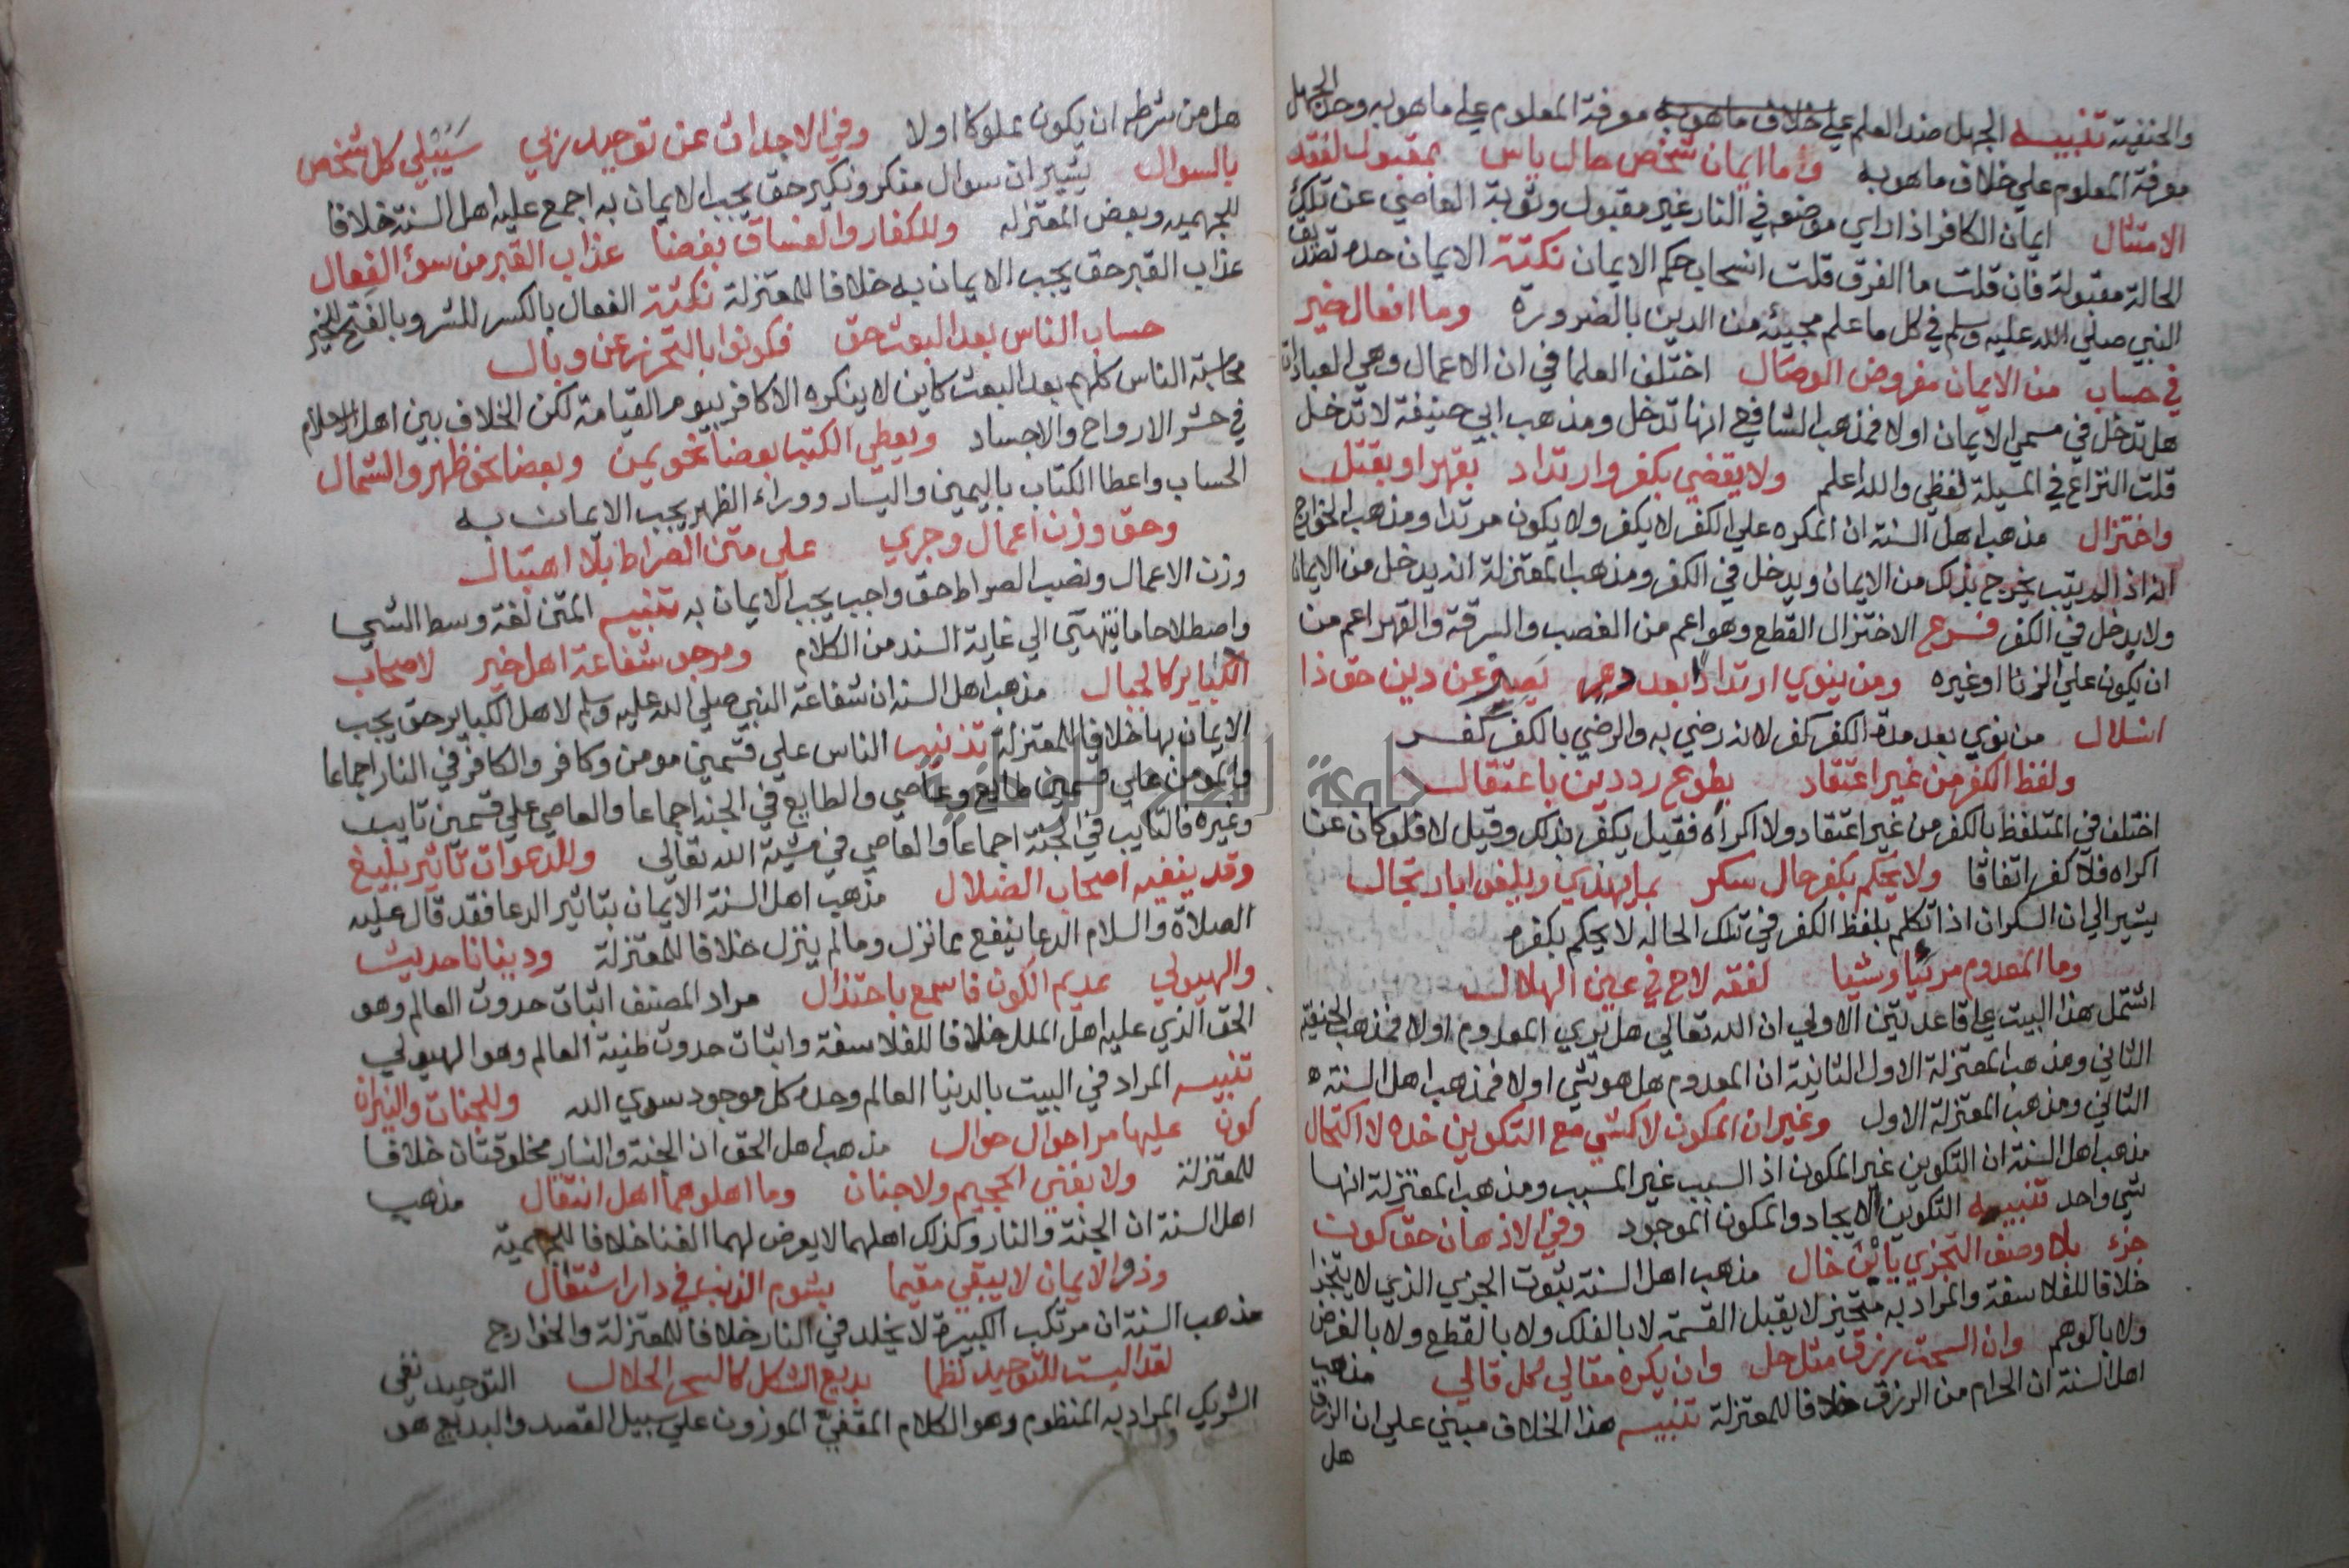 والحنفية تنبيه الجهل ضد العلم علي خلاف ما هو به معرفة المعلوم علي ما هو به وحد الجهل
معرفة المعلوم علي خلاف ما هو به وما ايمان شخص حال ياس بمقبول لفقد
الامتثال ايمان الكافر اذا راي موضعه في النار غير مقبول وتوبة العاصي عن تلك
الحالة مقبولة فان قلت ما الفرق قلت انسحاب حكم الايمان نكتة الايمان حده تصديق
النبي صلي الله عليه وسلم في كل ما علم مجيئه من الدين بالضرورة وما افعال خير
في حساب من الايمان مفروض الوصال اختلف العلما في ان الاعمال وهي العبادات
هل تدخل في مسمي الايمان اولا فمذهب الشافعي انها تدخل ومذهب ابي حنيفة لا تدخل
قلت النزاع في المسيلة لفظي والله اعلم ولا يقضي بكفر وارتداد بقهر او بقتل
واختزال مذهب اهل السنة ان المكره علي الكفر لا يكفر ولا يكون مرتدا ومذهب الخوارج
انه اذا لم يتب يخرج بذلك من الايمان ويدخل في الكفر ومذهب المعتزلة انه يدخل من الايمان
ولا يدخل في الكفر فرع الاختزال القطع وهو اعم من الغصب والسرقة والقهر اعم من
ان يكون علي الزنا او غيره ومن ينوي ارتدادا بعد دهر يصر عن دين حق ذا
انسلال من نوي بعد مدة الكفر كفر لانه رضي به والرضي بالكفر كفر
ولفظ الكفر من غير اعتقاد بطوع رد دين باعتقال
اختلف في المتلفظ بالكفر من غير اعتقاد ولا اكراه فقيل يكفر بذلك وقيل لا فلو كان عن
اكراه فلا كفر اتفاقا ولا يحكم بكفر حال سكر بما يهذي ويلغو بارتجال
يشير الي ان السكران اذا تكلم بلفظ الكفر في تلك الحاله لا يحكم بكفره
وما المعدوم مرئيا وشيا لفقه لاح في عين الهلال
اشتمل هذا البيت علي قاعدتين الاولي ان الله تعالي هل يري المعدوم اولا فمذهب الحنفية
الثاني ومذهب المعتزلة الاول الثانية ان المعدوم هل هو شي اولا فمذهب اهل السنة
الثاني ومذهب المعتزلة الاول وغيران المكون لا كشي مع التكوين خذه لاكتحال
مذهب اهل السنة ان التكوين غير المكون اذ السبب غير المسبب ومذهب المعتزلة انها
شي واحد تنبيه التكوين الايجاد والمكون الموجود وفي الاذهان حق كون
جزء بلا وصف التجزي يا بن خال مذهب اهل السنة ثبوت الجزي الذي لا يتجزا
خلافا للفلاسفة والمراد به متحيز لا يقبل القسمة لا بالفلك ولا بالقطع ولا بالفرض
ولا بالوهم وان السحت رزق مثل حل وان يكره مقالي كل قالي مذهب
اهل السنة ان الحرام من الرزق خلافا للمعتزلة تنبيه هذا الخلاف مبني علي ان الرزق
هل
هل من شرطه ان يكون مملوكا اولا وفي الاجداث عن توحيد ربي سيبلي كل شخص
بالسوال يشير ان سوال منكر ونكير حق يجب الايمان به اجمع عليه اهل السنة خلافا
للجهميه وبعض المعتزله وللكفار والفساق بعضا عذاب القبر من سوء الفعال
عذاب القبر حق يجب الايمان به خلافا للمعتزلة نكتة الفعال بالكسر للشر وبالفتح للخير
حساب الناس بعد البعث حق فكونوا بالتحرز عن وبال
محاسبة الناس كلهم بعد البعث كاين لا ينكره الا كافر بيوم القيامة لكن الخلاف بين اهل الاسلام
في حشر الارواح والاجساد ويعطي الكتب بعضا نحو يمين وبعضا نحو ظهر والشمال
الحساب واعطا الكتاب باليمين واليسار ووراء الظهر يجب الايمان به
وحق وزن اعمال وجري علي متن الصراط بلا اهتبال
وزن الاعمال ونصب الصراط حق واجب يجب الايمان به تنبيه المتن لغة وسط الشي
واصطلاحا ما ينتهي الي غاية السند من الكلام ومرجو شفاعة اهل خير لاصحاب
الكباير كالجبال مذهب اهل السنة ان شفاعة النبي صلي الله عليه وسلم لاهل الكباير حق يجب
الايمان بها خلافا للمعتزلة تذنيب الناس علي قسمين مومن وكافر والكافر في النار اجماعا
والمومن علي قسمين طايع وعاصي والطايع في الجنة اجماعا والعاصي علي قسمين تايب
وغيره فالتايب في الجنة اجماعا والعاصي في مشية الله تعالي وللدعوات تاثير بليغ
وقد ينفيه اصحاب الضلال مذهب اهل السنة الايمان بتاثير الدعا فقد قال عليه
الصلاة والسلام الدعا ينفع مما نزل ومما لم ينزل خلافا للمعتزلة ودنيانا حديث
والهيولي عديم الكون فاسمع باحتذال مراد المصنف اثبات حدوث العالم وهو
الحق الذي عليه اهل الملل خلافا للفلاسفة واثبات حدوث طنية العالم وهو الهيولي
تنبيه المراد في البيت بالدنيا العالم وحده كل موجود سوي الله وللجنات والنيران
كون عليها مر احوال حوال مذهب اهل الحق ان الجنة والنار مخلوقتان خلافا
للمعتزلة ولا يفني الجحيم ولا جنان وما اهلوهما اهل انتقال مذهب
اهل السنة ان الجنة والنار وكذلك اهلهما لا يعرض لهما الفنا خلافا للجهمية
وذو الايمان لا يبقي مقيما بشوم الذنب في دار اشتغال
مذهب السنة ان مرتكب الكبيرة لا يخلد في النار خلافا للمعتزلة والخوارج
لقد البست للتوحيد نظما بديع الشكل كالسحر الحلال التوحيد نفي
الشريك المراد به المنظوم وهو الكلام المقفي الموزون علي سبيل القصد والبديع هو
جامعة النجاح الوطنية